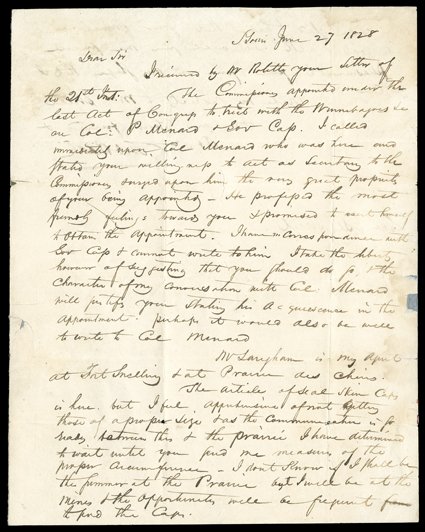 St Louis June 27 1828
Dear Sir
I received by Mr Rolette your letter of
the 21st Inst: The Commissioners appointed under the
last Act of Congress to treat with the Winnebagoes &c
are Col: P Menard & Gov Cass. I called
immediately upon Col Menard who was here and
stated your willingness to act as Secretary to the
Commissioners & urged upon him the very great propriety
of your being appointed — He professed the most
friendly feelings toward you & promised to exert himself
to obtain the appointment. I have no correspondence with
Gov Cass & cannot write to him I take the liberty
however of suggesting that you should do so, & the
character of my conversation with Col. Menard
will justify your stating his acquiescence in the
appointment. perhaps it would also be well
to write to Col Menard
Mr Langham is my agent
at Fort Snelling & at Prairie des Chiens.
The article of Seal Skin Caps
is here. but I feel apprehensive of not getting
those of a proper size & as the communication is so
ready between this & the prairie I have determined
to wait until you send me measures of the
proper circumference — I don't know if I shall be
this summer at the Prairie but I will be at the
mines & the opportunities will be frequent from
to send the Caps.